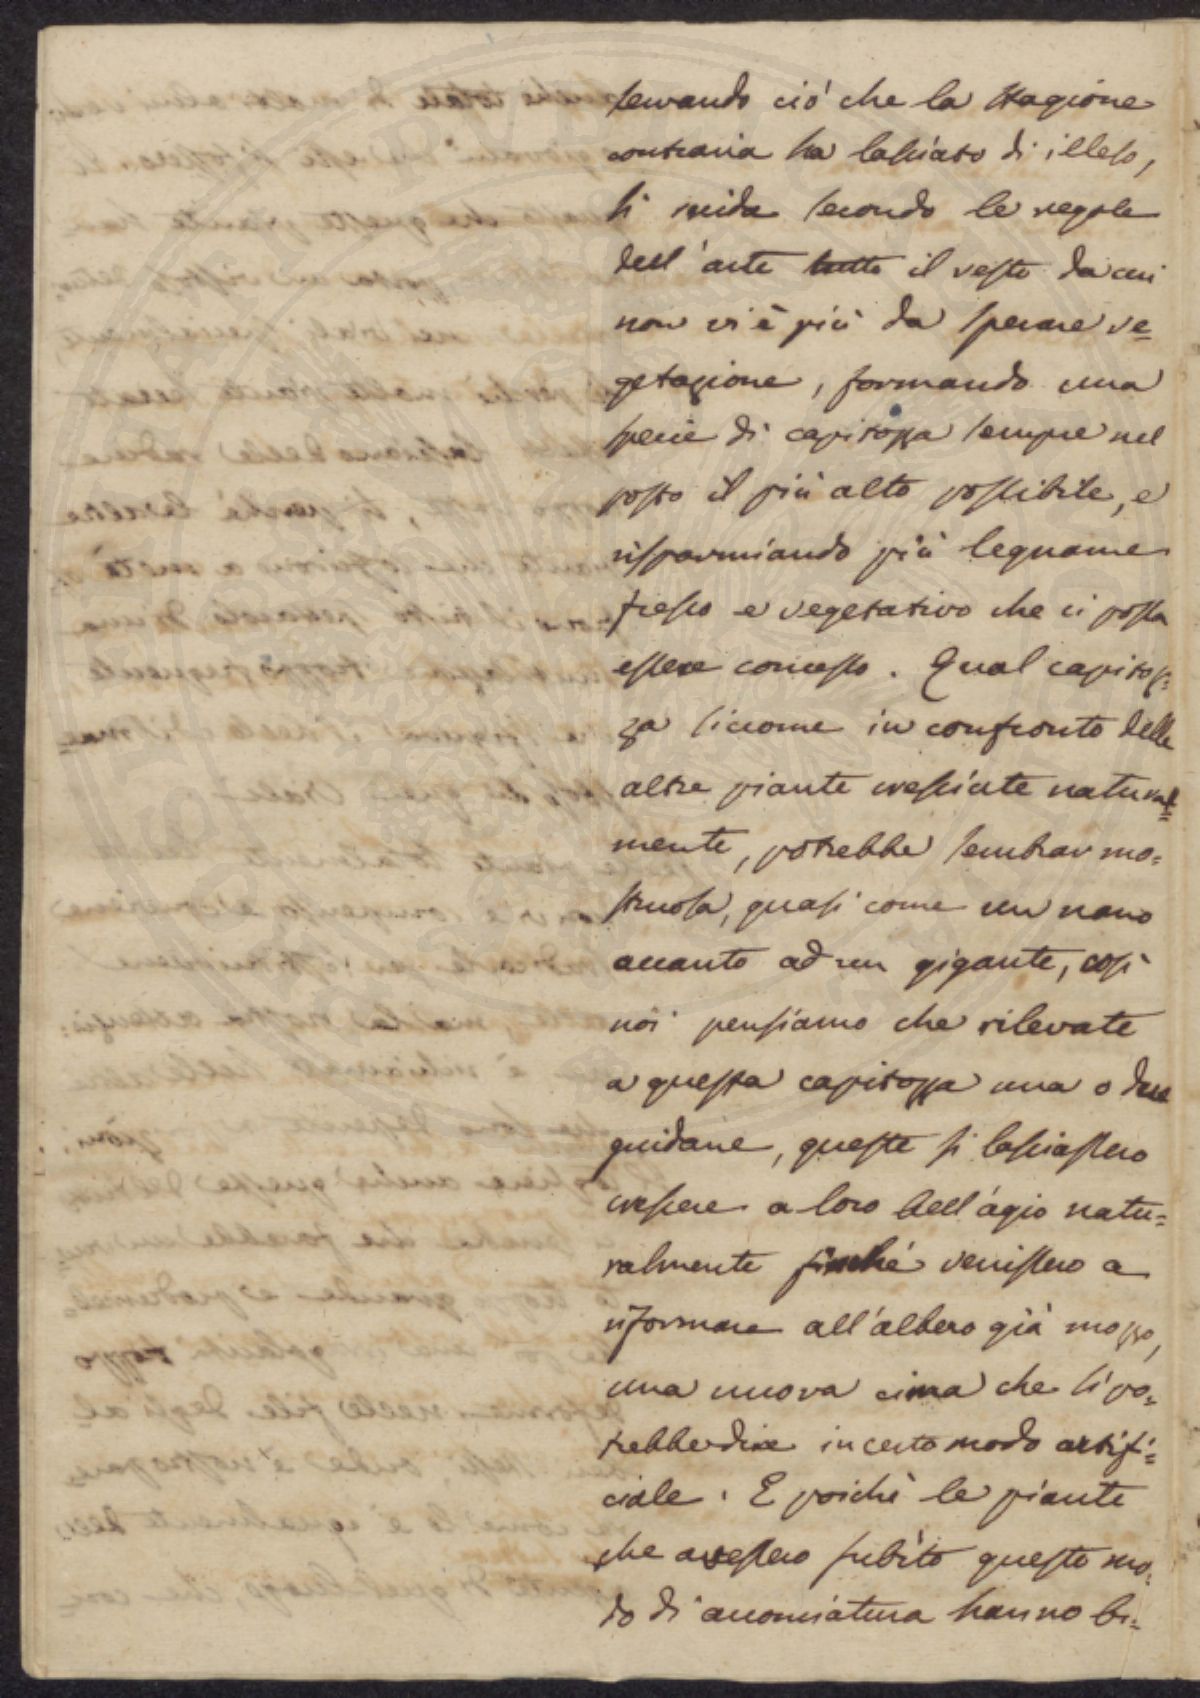 servando ciò che la stagione
contraria ha lasciato di illeso,
si recida secondo le regole
dell'arte tutto il resto da cui
non vi è più da sperare ve=
getazione, formando una
specie di capitozza sempre nel
posto il più alto possibile, e
risparmiando più legname
fresco e vegetativo che ci possa
essere concesso. Qual capitoz=
za siccome in confronto delle
altre piante cresciute natural=
mente, potrebbe sembrar mo=
struosa, quasi come un nano
accanto ad un gigante, così
noi pensiamo che rilevate
a questa capitozza una o due
guidane, queste si lasciassero
crescere a loro bell'agio natu=
ralmente finché venissero a
riformare all'albero già mozzo,
una nuova cima che si po=
trebbe dire in certo modo artifi=
ciale. E poichè le piante
che avessero subìto questo mo=
do di acconciatura hanno bi=